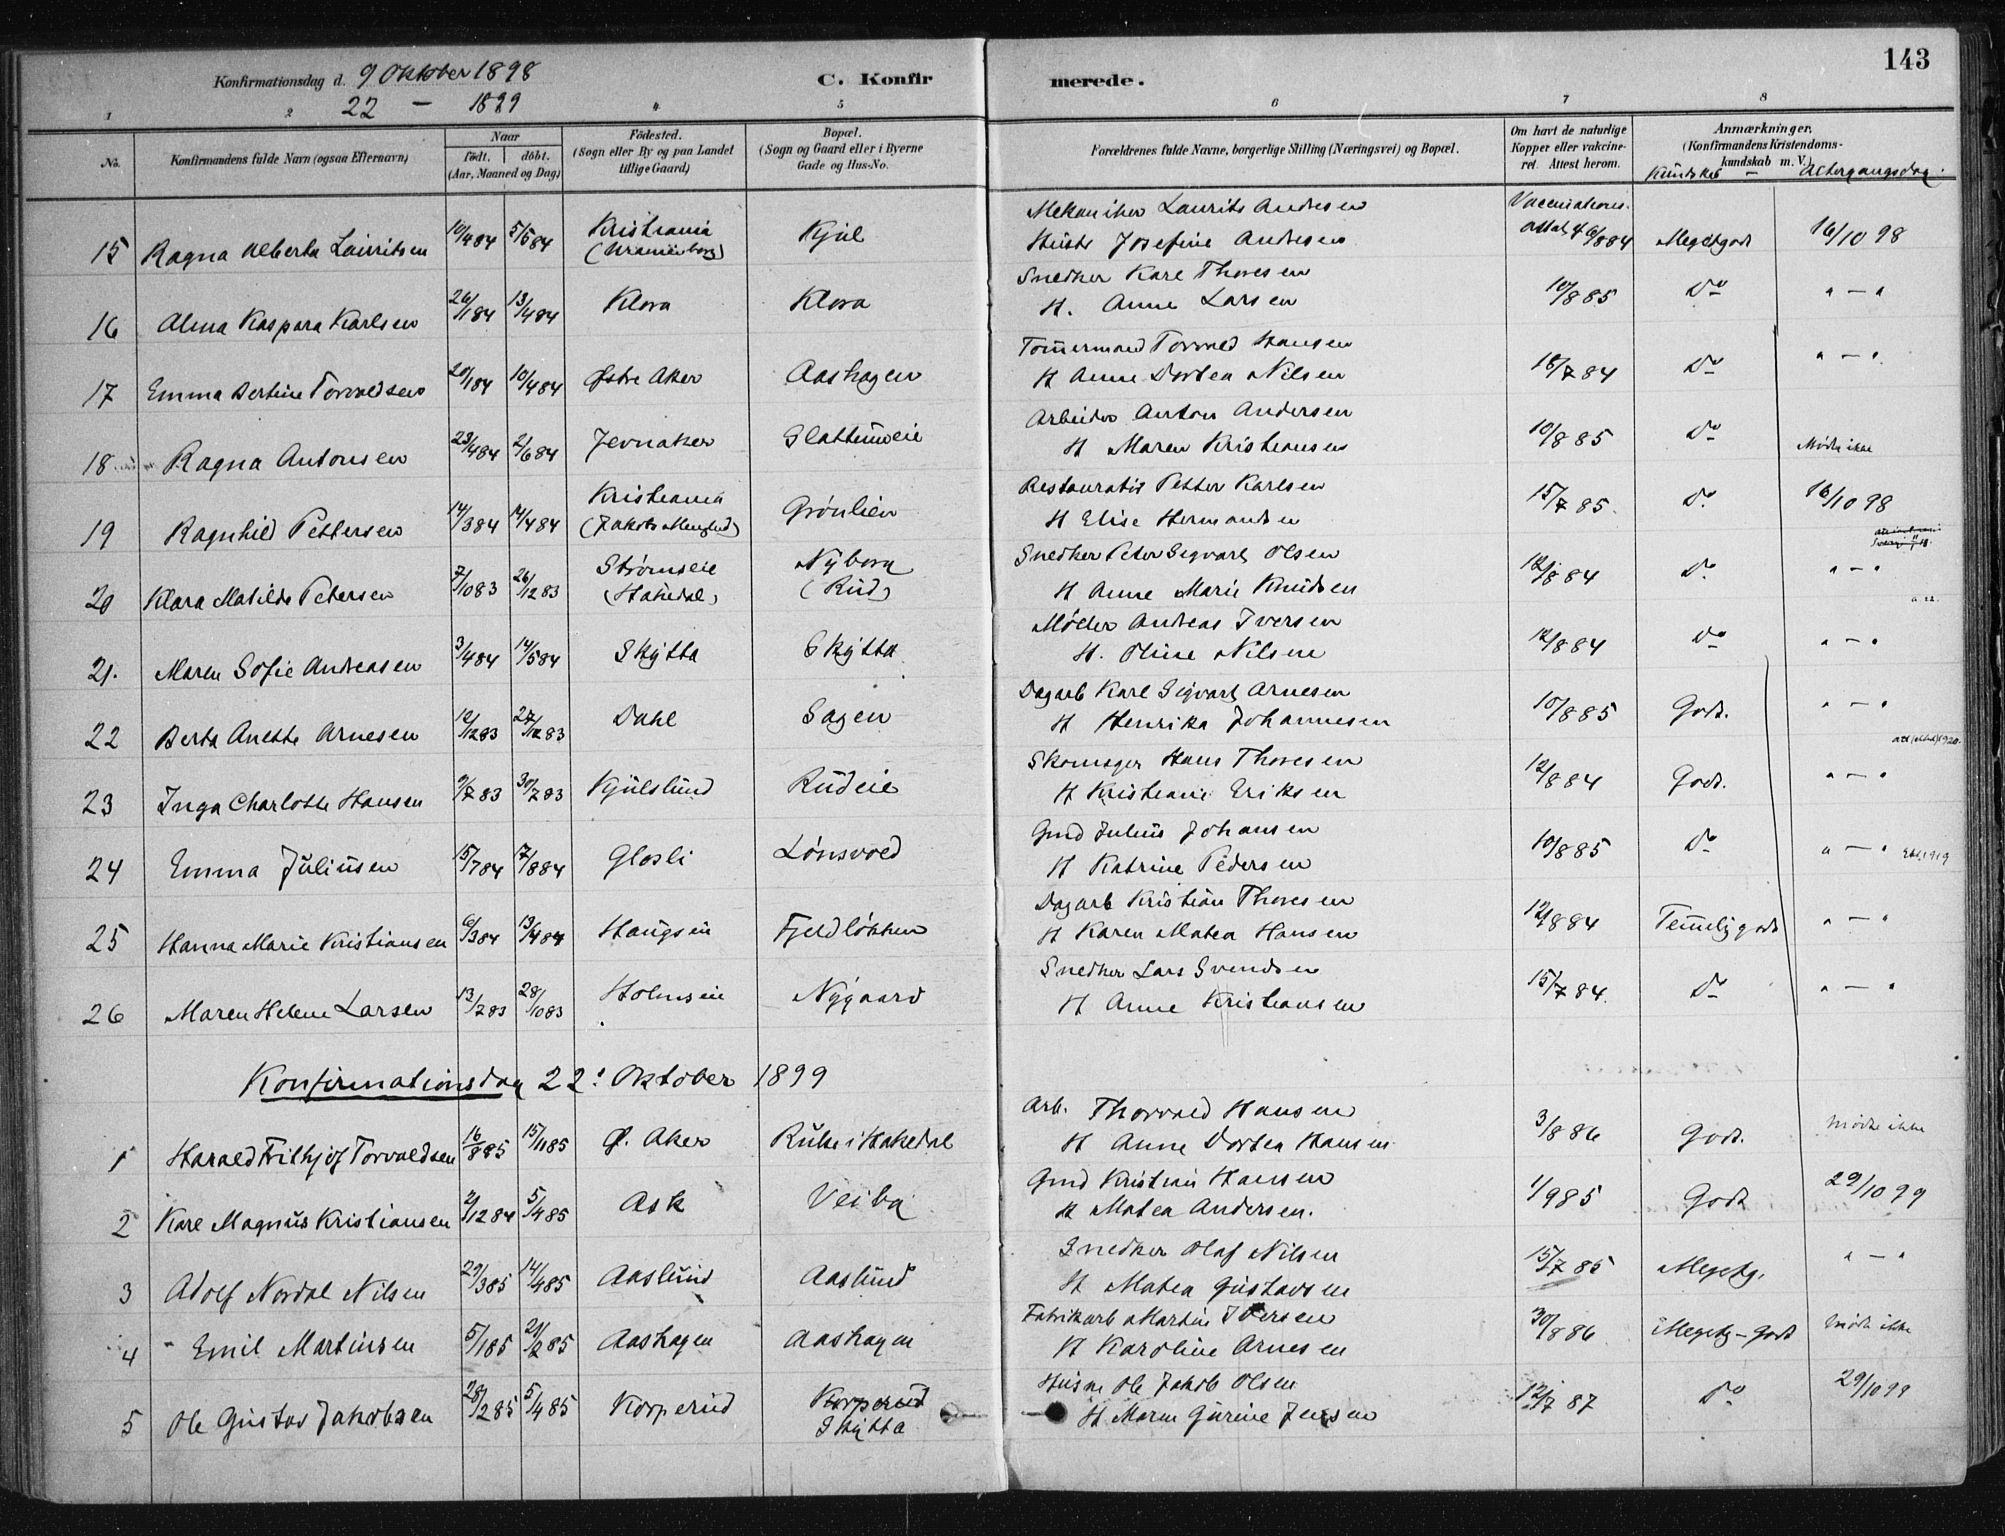 143
Konfirmationsdag d. 9 Oktober 1898 C. Konfir merede.
22 — 1899
1 2 4 5 6 7 8
No. Konfirmandens fulde Navn (ogsaa Efternavn) Naar födt. döbt. (Aar, Maaned og Dag) Födested. (Sogn eller By og paa Landet tillige Gaard) Bopæl. (Sogn og Gaard eller i Byerne Gade og Hus-No. Forældrenes fulde Navne, borgerlige Stilling (Næringsvei) og Bopæl. Om havt de naturlige Kopper eller vaccineret. Attest herom. Anmærkninger. (Konfirmandens Kristendomskundskab m. V.)
Kundskab — Altergangsdag.
15 Ragna Alberta Lauritsen 10/4 84 5/5 84 Kristiania (Uranienborg) Kjul Mekaniker Laurits Andresen Hustr Josefine Andresen Vaccinations attest 6/8 84 Megetgodt 16/10 98
16 Alma Kaspara Karlsen 26/1 84 13/4 84 Klora Klora Snedker Karl Thoresen H. Anne Larsen 10/8 85 Do " — "
17 Emma Bertine Torvaldsen 20/1 84 10/4 84 Østre Aker Aashagen Tømmermand Torvald Hansen H Anne Dortea Nilsen 18/7 84 Do " — "
18 Ragna Antonsen 23/4 84 2/6 84 Jevnaker Slattumeie Arbeider Anton Andersen H Maren Kristiansen 10/8 85 Do Mødte ikke
19 Ragnhild Pettersen 14/3 84 14/4 84 Kristiania Grønlien Restauratør Petter Karlsen H Elise Hermansen 15/7 85. Do 16/10 98
20 Klara Matilde Petersen 7/10 83 26/12 83 Strømseie (Hakedal) Nyborg (Rud) Snedker Peter Segvart Olsen H Anne Marie Knudsen 12/8 84 Do " — "
21. Maren Sofie Andreasen 3/4 84 14/5 84 Skytta Skytta Møller Andreas Iversen H. Oline Nilsen 12/8 84 Do " — "
22 Berta Anette Arnesen 12/12 83 27/12 83 Dahl Sagen Dagarb Karl Sigvart Arnesen H Henrika Johannesen 10/8 85 Godt. " — "
23 Inga Charlotte Hansen 9/7 83 30/7 83 Kjulslund Rudeie Skomager Hans Thoresen H Kristiane Eriksen 12/8 84 Godt. " — "
24 Emma Juliusen 15/7 84 7/8 84 Glosli Lønsvold Gmd Julius Johansen H Katrine Pedersen 10/8 85 Do " — "
25 Hanna Marie Kristiansen 6/3 84 13/4 84 Haugsei Fjeldløkken Dagarb Kristian Thoresen H Karen Matea Hansen 12/8 84 Temmelig godt " — "
26 Maren Helene Larsen 13/7 83 28/10 83 Holmseie Nygaard Snedker Lars Svendsen H Anne Kristiansen 15/7 84. Do " — "
Konfirmationsdag 22: Oktober 1899
1 Harald Frithjof Torvaldsen 16/8 85 15/11 85 Ø. Aker i Hakedal Arb. Thorvald Hansen H Anne Dortea Hansen 3/8 86 Godt. Mødte ikke
2 Karl Magnus Kristiansen 2/12 84 5/4 85 Ask Veiba Gmd Kristian Hansen H Matea Andersen. 1/9 85 Godt 29/10 99
3 Adolf Nordal Nilsen 29/3 85 14/4 85 Aaslund Aaslund Snedker Olaf Nilsen H Matea Gustavsen 15/7 85 Megetg. " — "
4 Emil Martinsen 5/1 85 21/2 85 Aashagen Aashagen Fabrikarb Martin Iversen H Karoline Arnesen 30/8 86 Megetg – Godt mødte ikke
5 Ole Gustav Jakobsen 28/2 85 5/4 85 Korperud Korperud Skytta Husm Ole Jakob Olsen H Maren Gurine Jensen 12/7 87 Do 29/10 99